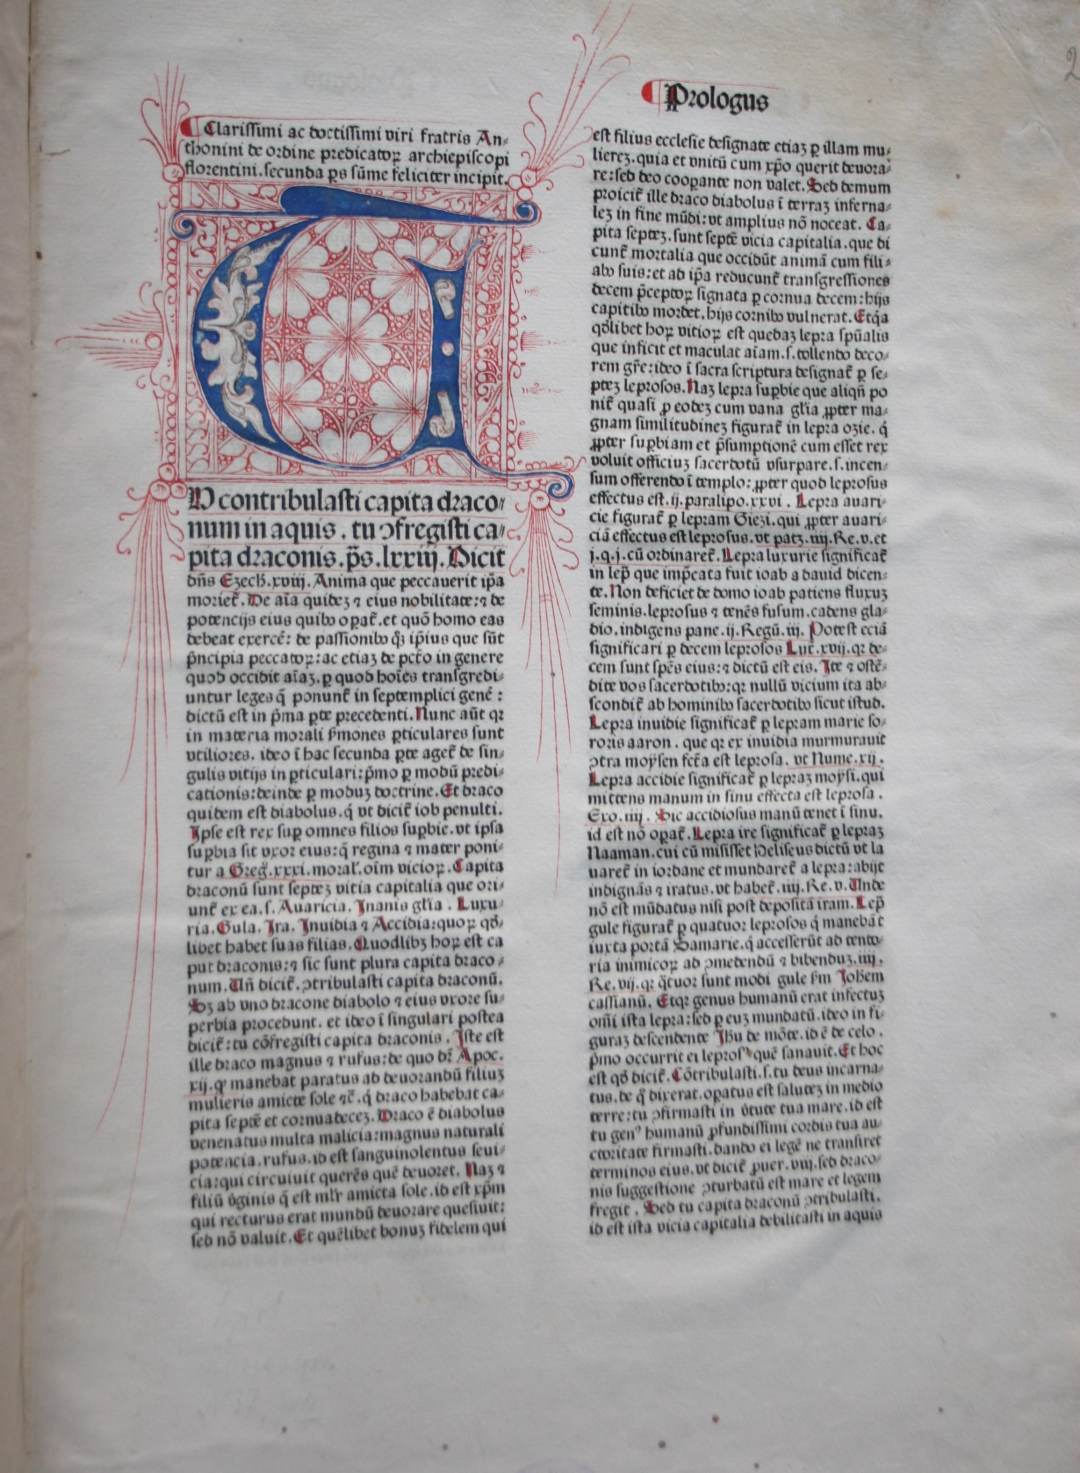 Prologus
2
Clarissimi ac doctissimi viri fratris An-
thonini de ordine predicatoꝝ archiepiscopi
florentini. secunda ꝑs sūme feliciter incipit.
TV contribulasti capita draco-
num in aquis. tu ꝯfregisti ca-
pita draconis. p̄s. lxxiij. Dicit
dn̄s Ezech. xviij. Anima que peccauerit ip̄a
moriet᷑. De aīa quidez ⁊ eius nobilitate: ⁊ de
potencijs eius quibꝰ oꝑat᷑. et quō homo eas
debeat exercē: de passionibꝰ q̄s ip̄ius que sūt
p̄ncipia peccatoꝝ: ac etiaꝫ de pctō in genere
quod occidit aīaꝫ. ꝑ quod hoīes transgredi-
untur leges q̄ ponunt᷑ in septemplici genē:
dictū est in p̄ma ꝑte precedenti. Nunc aūt qꝛ
in materia morali ẜmones ꝑticulares sunt
vtiliores. ideo ī hac secunda ꝑte aget᷑ de sin-
gulis vitijs in ꝑticulari: p̄mo ꝑ modū predi-
cationis: deinde ꝑ moduꝫ doctrine. Et draco
quidem est diabolus. q̄ vt dicit᷑ iob penulti.
Ipse est rex suꝑ omnes filios suꝑbie. vt ipsa
suꝑbia sit vxor eius: q̄ regina ⁊ mater poni-
tur a Greg̃. xxxi. moral᷑. oīm vicioꝝ. Capita
draconū sunt septeꝫ vitia capitalia que ori-
unt᷑ ex ea. s. Auaricia. Inanis gl̄ia. Luxu-
ria. Gula. Ira. Inuidia ⁊ Accidia: quoꝝ qd̄-
libet habet suas filias. Quodlibꝫ hoꝝ est ca
put draconis: ⁊ sic sunt plura capita draco-
num. Un̄ dicit᷑. ꝯtribulasti capita draconū.
Sꝫ ab vno dracone diabolo ⁊ eius vxore su-
perbia procedunt. et ideo ī singulari postea
dicit᷑: tu cōfregisti capita draconis. Iste est
ille draco magnus ⁊ rufus: de quo dr̄ Apoc.
xij. qꝙ manebat paratus ad deuorandū filiuꝫ
mulieris amicte sole ⁊c̄. q̄ draco habebat ca-
pita septē et cornua deceꝫ. Draco ē diabolus
venenatus multa malicia: magnus naturali
potencia. rufus. id est sanguinolentus seui-
cia: qui circuiuit querēs quē deuoret. Naꝫ ⁊
filiū v̄ginis q̄ est ml̄r amicta sole. id est xp̄m
qui recturus erat mundū deuorare quesiuit:
sed nō valuit. Et quēlibet bonuꝫ fidelem qui
est filius ecclesie designate etiaꝫ ꝑ illam mu-
liereꝫ. quia et vnitū cum xp̄o querit deuora-
re: sed deo cooꝑante non valet. Sed demum
proicit᷑ ille draco diabolus ī terraꝫ inferna-
leꝫ in fine mūdi: vt amplius nō noceat. Ca-
pita septeꝫ. sunt septē vicia capitalia. que di
cunt᷑ mortalia que occidūt animā cum fili-
abꝰ suis: et ad ip̄a reducunt᷑ transgressiones
decem p̄ceptoꝝ signata ꝑ cornua decem: hijs
capitibꝰ mordet. hijs cornibꝰ vulnerat. Etq̄a
qd̄libet hoꝝ vitioꝝ est quedaꝫ lepra spūalis
que inficit et maculat aīam. s. tollendo deco-
rem gr̄e: ideo ī sacra scriptura designat᷑ ꝑ se-
pteꝫ leprosos. Naꝫ lepra suꝑbie que aliqn̄ po
nit᷑ quasi ꝓ eodeꝫ cum vana gl̄ia ꝓpter ma-
gnam similitudineꝫ figurat᷑ in lepra ozie. q̄
ꝓpter suꝑbiam et p̄sumptionē cum esset rex
voluit officiuꝫ sacerdotū vsurpare. s. incen-
sum offerendo ī templo: ꝓpter quod leprosus
effectus est. ij. paralipo. xxvi. Lepra auari-
cie figurat᷑ ꝑ lepram Giezi. qui ꝓpter auari-
ciā effectus est leprosus. vt patꝫ. iiij. Re. v. et
j. q. j. cū ordinaret᷑. Lepra luxurie significat᷑
in lep̄ que imp̄cata fuit ioab a dauid dicen-
te. Non deficiet de domo ioab patiens fluxuꝫ
seminis. leprosus ⁊ tenēs fusum. cadens gla-
dio. indigens pane. ij. Regū. iij. Potest eciā
significari ꝑ decem leprosos Luc̄. xvij. qꝛ de-
cem sunt spēs eius: ⁊ dictū est eis. Ite ⁊ ostē-
dite vos sacerdotibꝰ: qꝛ nullū vicium ita ab-
scondit᷑ ab hominibꝰ sacerdotibꝰ sicut istud.
Lepra inuidie significat᷑ ꝑ lepram marie so-
roris aaron. que qꝛ ex inuidia murmurauit
ꝯtra moysen fc̄ta est leprosa. vt Nume. xij.
Lepra accidie significat᷑ ꝑ lepraꝫ moysi. qui
mittens manum in sinu effecta est leprosa.
Exo. iiij. Sic accidiosus manū tenet ī sinu.
id est nō oꝑat᷑. Lepra ire significat᷑ ꝑ lepraꝫ
Naaman. cui cū misisset Heliseus dictū vt la
uaret᷑ in iordane et mundaret᷑ a lepra: abijt
indignās ⁊ iratus. vt habet᷑. iiij. Re. v. Unde
nō est mūdatus nisi post depositā iram. Lep̄
gule figurat᷑ ꝑ quatuor leprosos q̄ manebāt
iuxta portā Samarie. q̄ accesserūt ad tento-
ria inimicoꝝ ad ꝯmedendū ⁊ bibenduꝫ. iiij.
Re. vij. qꝛ q̄tuor sunt modi gule ẜm Iohem
cassianū. Etqꝛ genus humanū erat infectuꝫ
om̄i ista lepra: sed ꝑ euꝫ mundatū. ideo in fi-
guraꝫ descendente Ihu de mōte. id ē de celo.
p̄mo occurrit ei leprosꝰ quē sanauit. Et hoc
est qd̄ dicit᷑. Cōtribulasti. s. tu deus incarna-
tus. de q̄ dixerat. oꝑatus est saluteꝫ in medio
terre: tu ꝯfirmasti in v̄tute tua mare. id est
tu genꝰ humanū ꝓfundissimi cordis tua au-
ctoritate firmasti. dando ei legē ne transiret
terminos eius. vt dicit᷑ ꝓuer. viij. sed draco-
nis suggestione ꝯturbatū est mare et legem
fregit. Sed tu capita draconū ꝯtribulasti.
id est ista vicia capitalia debilitasti in aquis